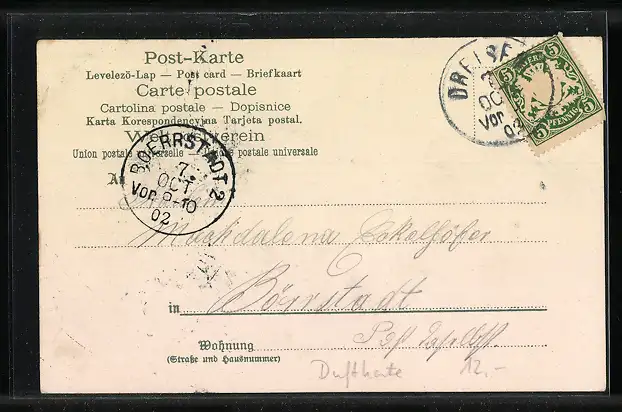 Post-Karte
Levelező-Lap — Post card — Briefkaart
Carte postale
Cartolina postale — Dopisnice
Karta Korespondencyjna Tarjeta postal.
Weltpostverein
Union postale universelle — postale universale
An
BOERRSTADT 2
7.
OCT
Vor. 8-10
02
DREISE
OC
Vor
02
5 5
BAYERN
PFENNIG
5 5
Machdalena
in Börrstadt
Post
Wohnung
(Straße und Hausnummer)
Duftkarte 12.-